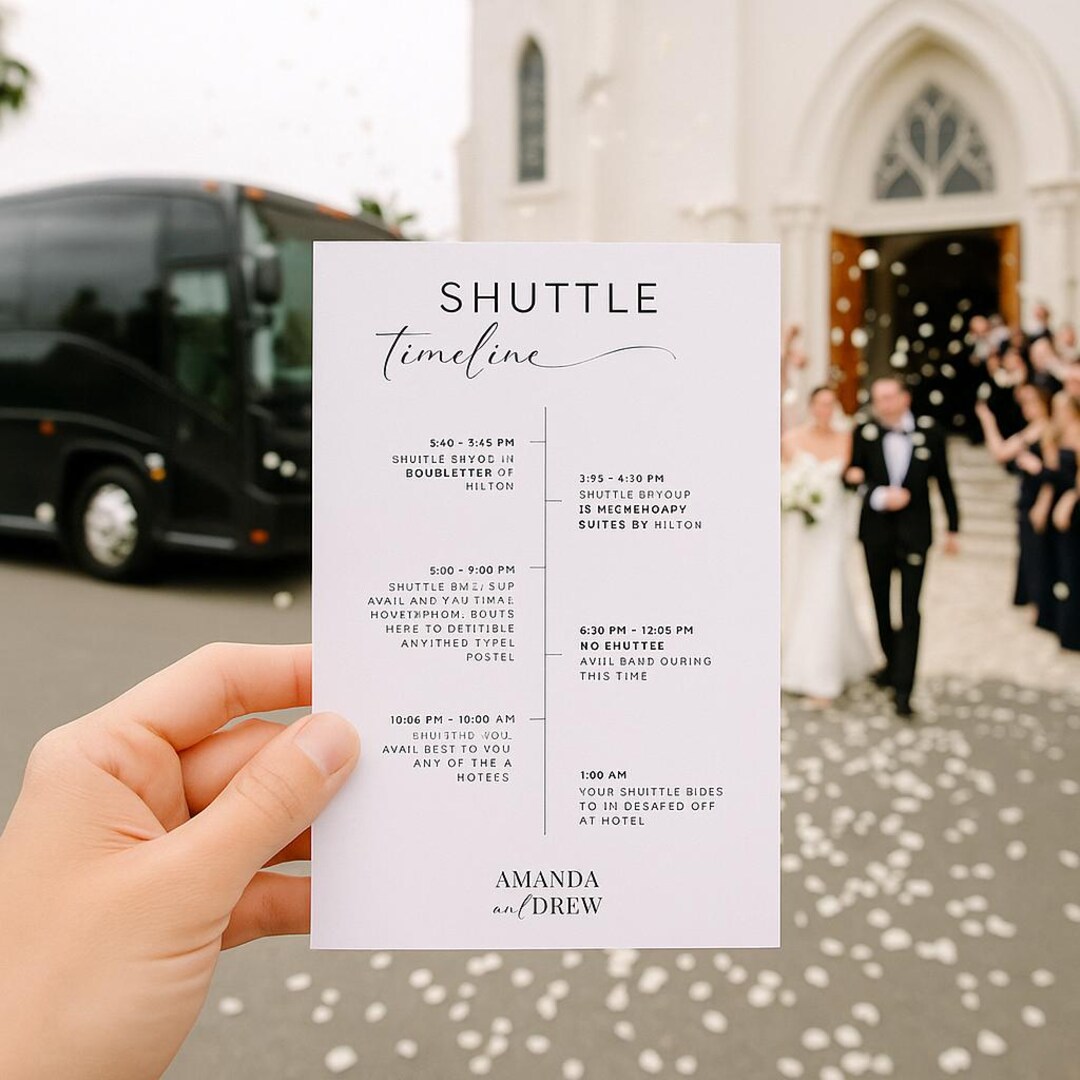 SHUTTLE
timeline
5:40 - 3:45 PM
SHUITLE SHYOD IN
BOUBLETTER OF
HILTON
3:95 - 4:30 PM
SHUTTLE BRYOUP
IS MECMEHOAPY
SUITES BY HILTON
5:00 - 9:00 PM
SHUTTLE SUP
AVAIL AND YAU TIMAE
BOUTS
HERE TO DETITIBLE
ANYITHED TYPEL
POSTEL
6:30 PM - 12:05 PM
NO EHUTTEE
AVIIL BAND OURING
THIS TIME
10:06 PM - 10:00 AM
AVAIL BEST TO VOU
ANY OF THE A
HOTEES
1:00 AM
YOUR SHUITTLE BIDES
TO IN DESAFED OFF
AT HOTEL
AMANDA
and DREW